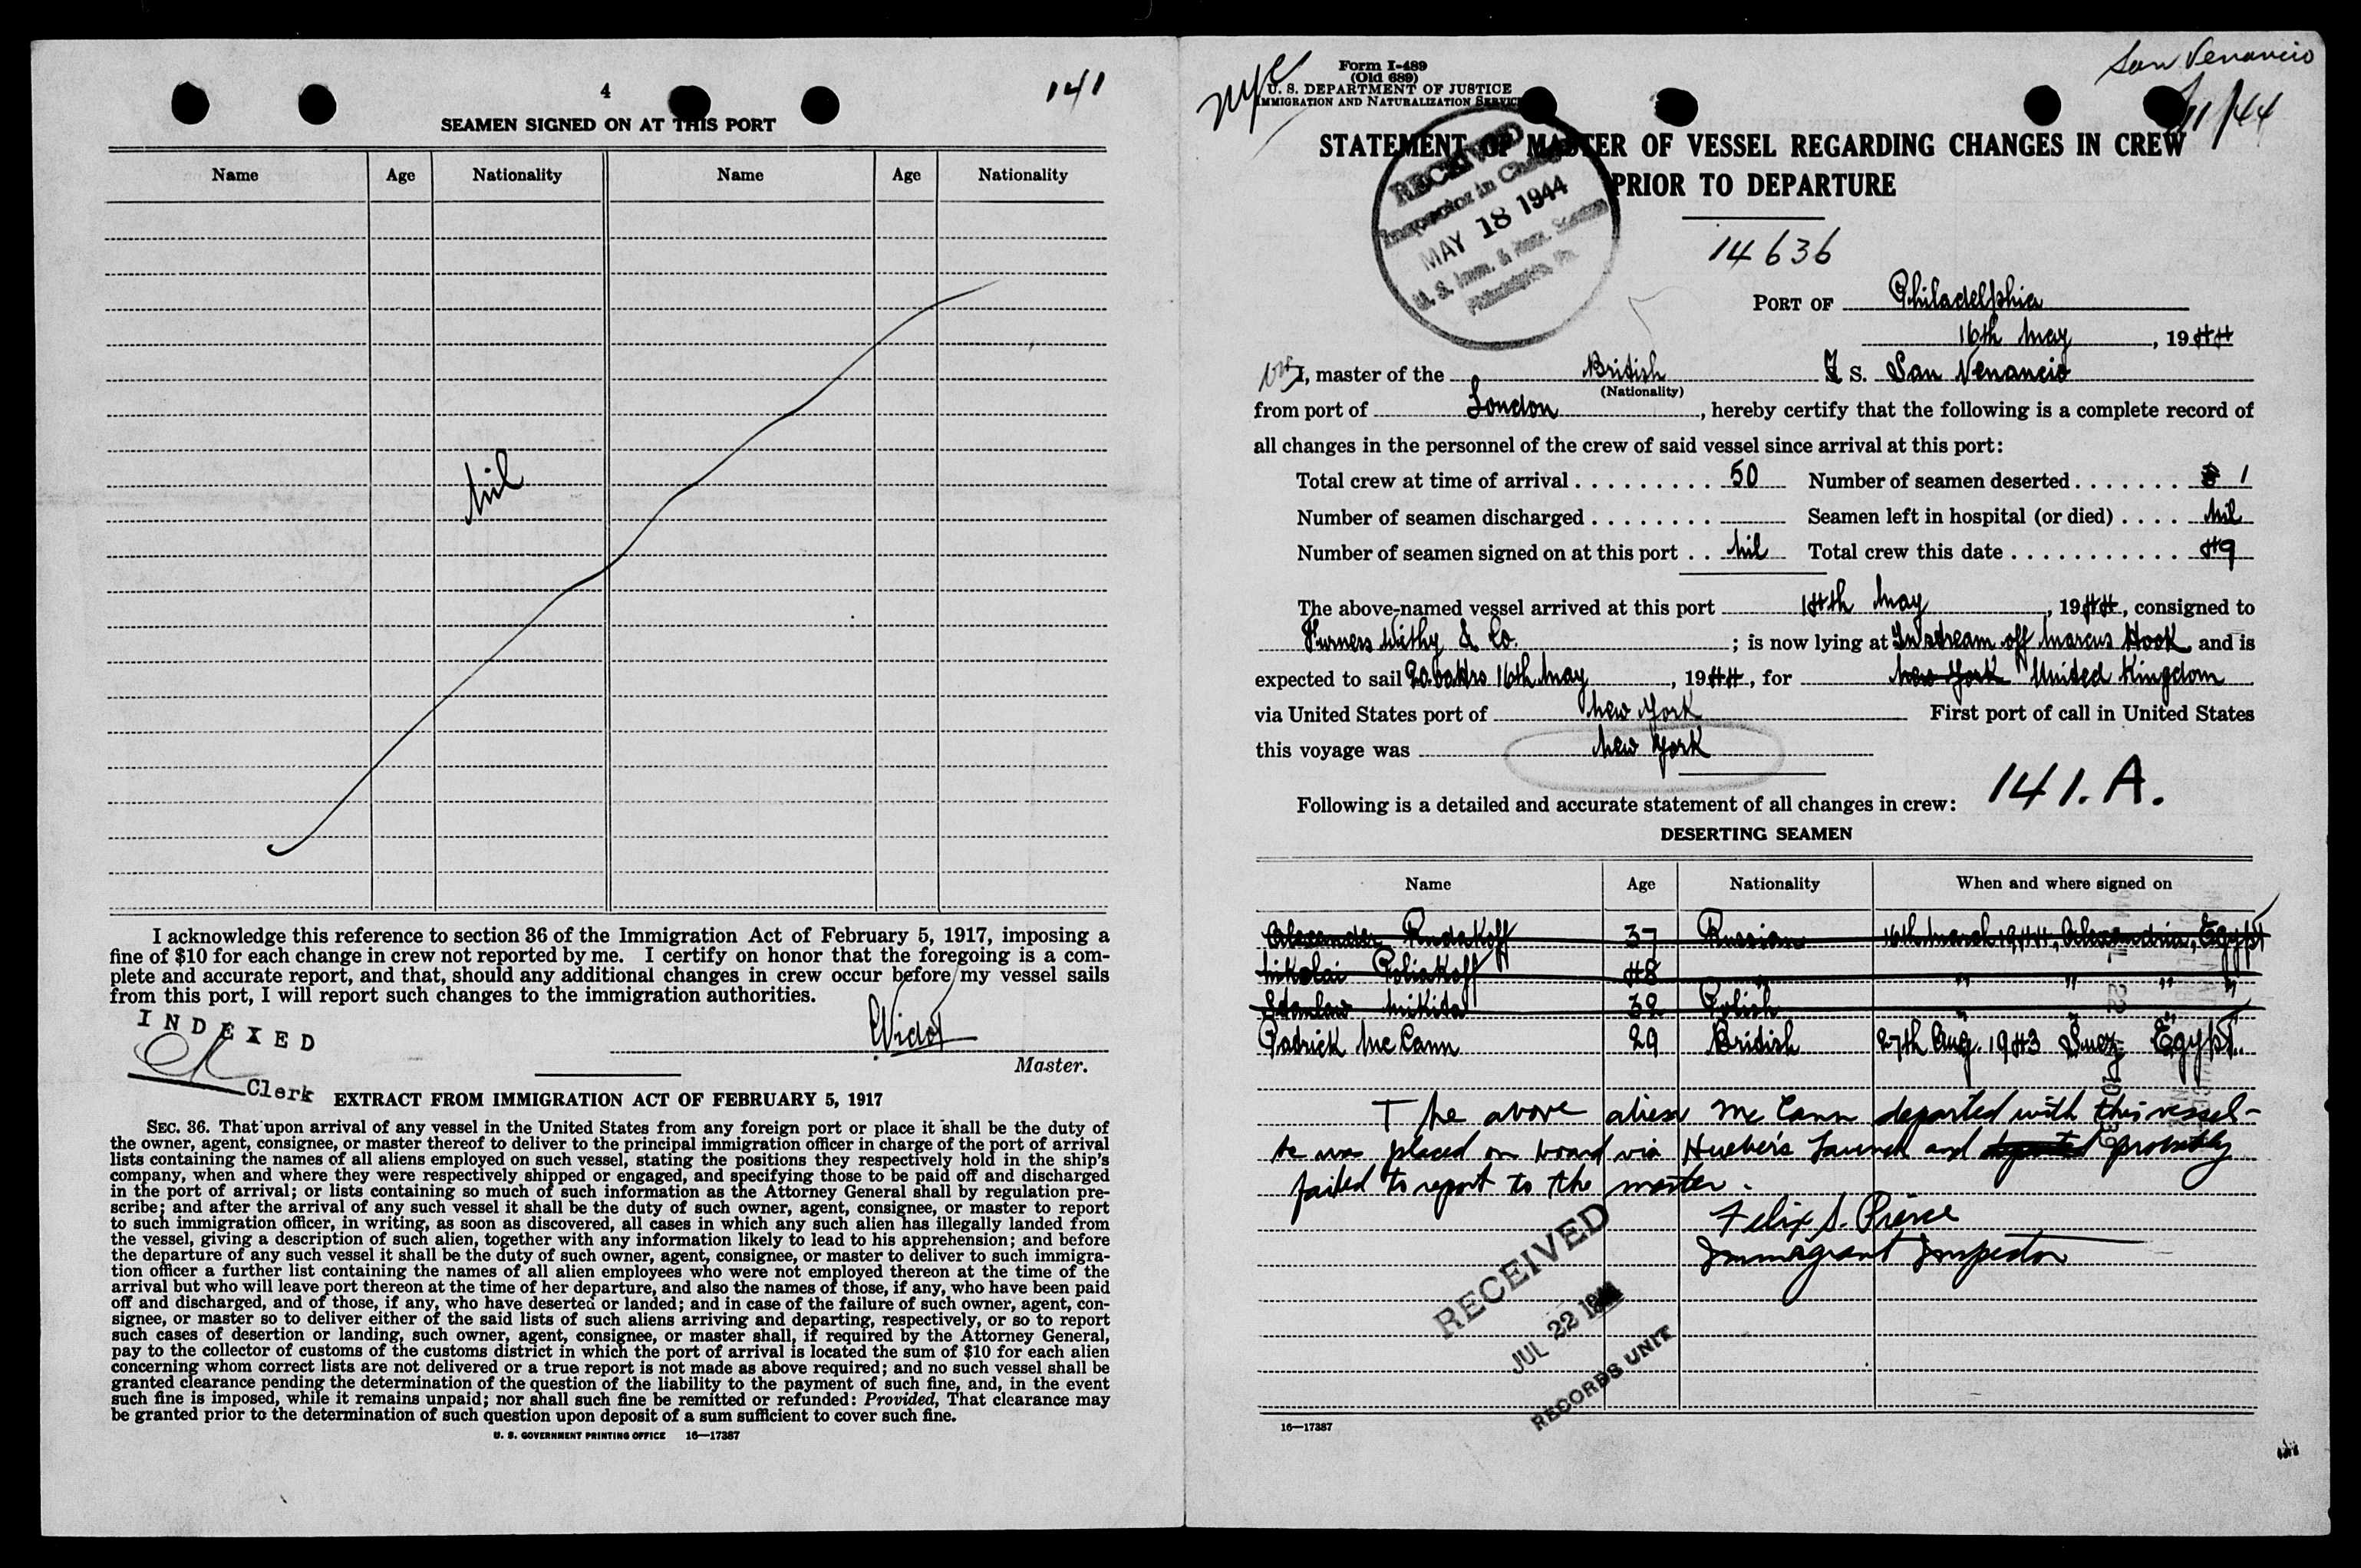 4
141
SEAMEN SIGNED ON AT THIS PORT
Name Age Nationality Name Age Nationality
Nil
I acknowledge this reference to section 36 of the Immigration Act of February 5, 1917, imposing a
fine of $10 for each change in crew not reported by me. I certify on honor that the foregoing is a com-
plete and accurate report, and that, should any additional changes in crew occur before my vessel sails
from this port, I will report such changes to the immigration authorities.
INDEXED
Clerk
Master.
EXTRACT FROM IMMIGRATION ACT OF FEBRUARY 5, 1917
SEC. 36. That upon arrival of any vessel in the United States from any foreign port or place it shall be the duty of
the owner, agent, consignee, or master thereof to deliver to the principal immigration officer in charge of the port of arrival
lists containing the names of all aliens employed on such vessel, stating the positions they respectively hold in the ship's
company, when and where they were respectively shipped or engaged, and specifying those to be paid off and discharged
in the port of arrival; or lists containing so much of such information as the Attorney General shall by regulation pre-
scribe; and after the arrival of any such vessel it shall be the duty of such owner, agent, consignee, or master to report
to such immigration officer, in writing, as soon as discovered, all cases in which any such alien has illegally landed from
the vessel, giving a description of such alien, together with any information likely to lead to his apprehension; and before
the departure of any such vessel it shall be the duty of such owner, agent, consignee, or master to deliver to such immigra-
tion officer a further list containing the names of all alien employees who were not employed thereon at the time of the
arrival but who will leave port thereon at the time of her departure, and also the names of those, if any, who have been paid
off and discharged, and of those, if any, who have deserted or landed; and in case of the failure of such owner, agent, con-
signee, or master so to deliver either of the said lists of such aliens arriving and departing, respectively, or so to report
such cases of desertion or landing, such owner, agent, consignee, or master shall, if required by the Attorney General,
pay to the collector of customs of the customs district in which the port of arrival is located the sum of $10 for each alien
concerning whom correct lists are not delivered or a true report is not made as above required; and no such vessel shall be
granted clearance pending the determination of the question of the liability to the payment of such fine, and, in the event
such fine is imposed, while it remains unpaid; nor shall such fine be remitted or refunded: Provided, That clearance may
be granted prior to the determination of such question upon deposit of a sum sufficient to cover such fine.
U. S. GOVERNMENT PRINTING OFFICE 16—17387
San Venancio
Form I-489
(Old 689)
U. S. DEPARTMENT OF JUSTICE
IMMIGRATION AND NATURALIZATION SERVICE
STATEMENT OF MASTER OF VESSEL REGARDING CHANGES IN CREW
PRIOR TO DEPARTURE
RECEIVED
Inspector in Charge
MAY 18 1944
U. S. Imm. & Nat. Station
Philadelphia, Pa.
14636
PORT OF Philadelphia
16th May, 1944
I, master of the British S. San Venancio
(Nationality)
from port of London, hereby certify that the following is a complete record of
all changes in the personnel of the crew of said vessel since arrival at this port:
Total crew at time of arrival 50 Number of seamen deserted 1
Number of seamen discharged Seamen left in hospital (or died) Nil
Number of seamen signed on at this port Nil Total crew this date 49
The above-named vessel arrived at this port 14th May, 1944, consigned to
Furness Withy & Co.; is now lying at In stream off Marcus Hook and is
expected to sail 16th May, 1944, for New York United Kingdom
via United States port of New York First port of call in United States
this voyage was New York
141.A.
Following is a detailed and accurate statement of all changes in crew:
DESERTING SEAMEN
Name Age Nationality When and where signed on
Alexander Rudakoff 37 Russian 16th March 1944, Alexandria, Egypt
Nikolai Poliakoff 48 " " " " "
Stanlaw Mikita 32 Polish " " " "
Patrick McCann 29 British 27th Aug. 1943 Suez Egypt.
The above alien McCann departed with this vessel -
he was placed on board via Hueber's Launch and probably
failed to report to the master.
Felix S. Pierce
Immigrant Inspector
RECEIVED
JUL 22 1944
RECORDS UNIT
16—17387